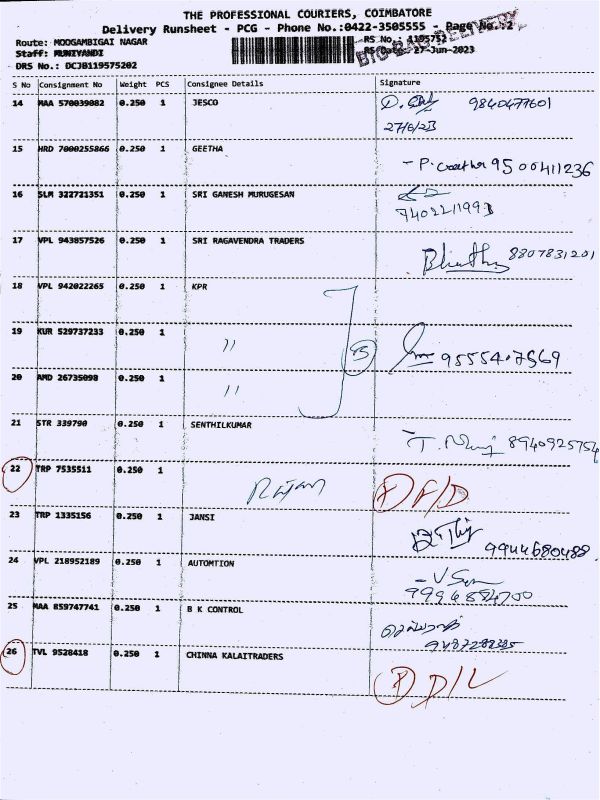 THE PROFESSIONAL COURIERS, COIMBATORE
Delivery Runsheet - PCG - Phone No.:0422-3505555 - Page No.:2
BIG BAG DELIVERY
Route: MOOGAMBIGAI NAGAR RS No.: 1195752
Staff: MUNIYANDI RS Date: 27-Jun-2023
DRS No.: DCJB119575202
S No Consignment No Weight PCS Consignee Details Signature
14 MAA 570039082 0.250 1 JESCO 9840477601
27/6/23
15 HRD 7000255866 0.250 1 GEETHA - P. Geetha 9500411236
16 SLM 322721351 0.250 1 SRI GANESH MURUGESAN
7402211993
17 VPL 943857526 0.250 1 SRI RAGAVENDRA TRADERS 8807831201
18 VPL 942022265 0.250 1 KPR
19 KUR 529737233 0.250 1 〃 3 9555407569
20 AMD 26735098 0.250 1 〃
21 STR 339790 0.250 1 SENTHILKUMAR 8940925754
22 TRP 7535511 0.250 1 Rajan
23 TRP 1335156 0.250 1 JANSI 9944680488
24 VPL 218952189 0.250 1 AUTOMTION
9994884700
25 MAA 859747741 0.250 1 B K CONTROL
26 TVL 9528418 0.250 1 CHINNA KALAITRADERS D/L